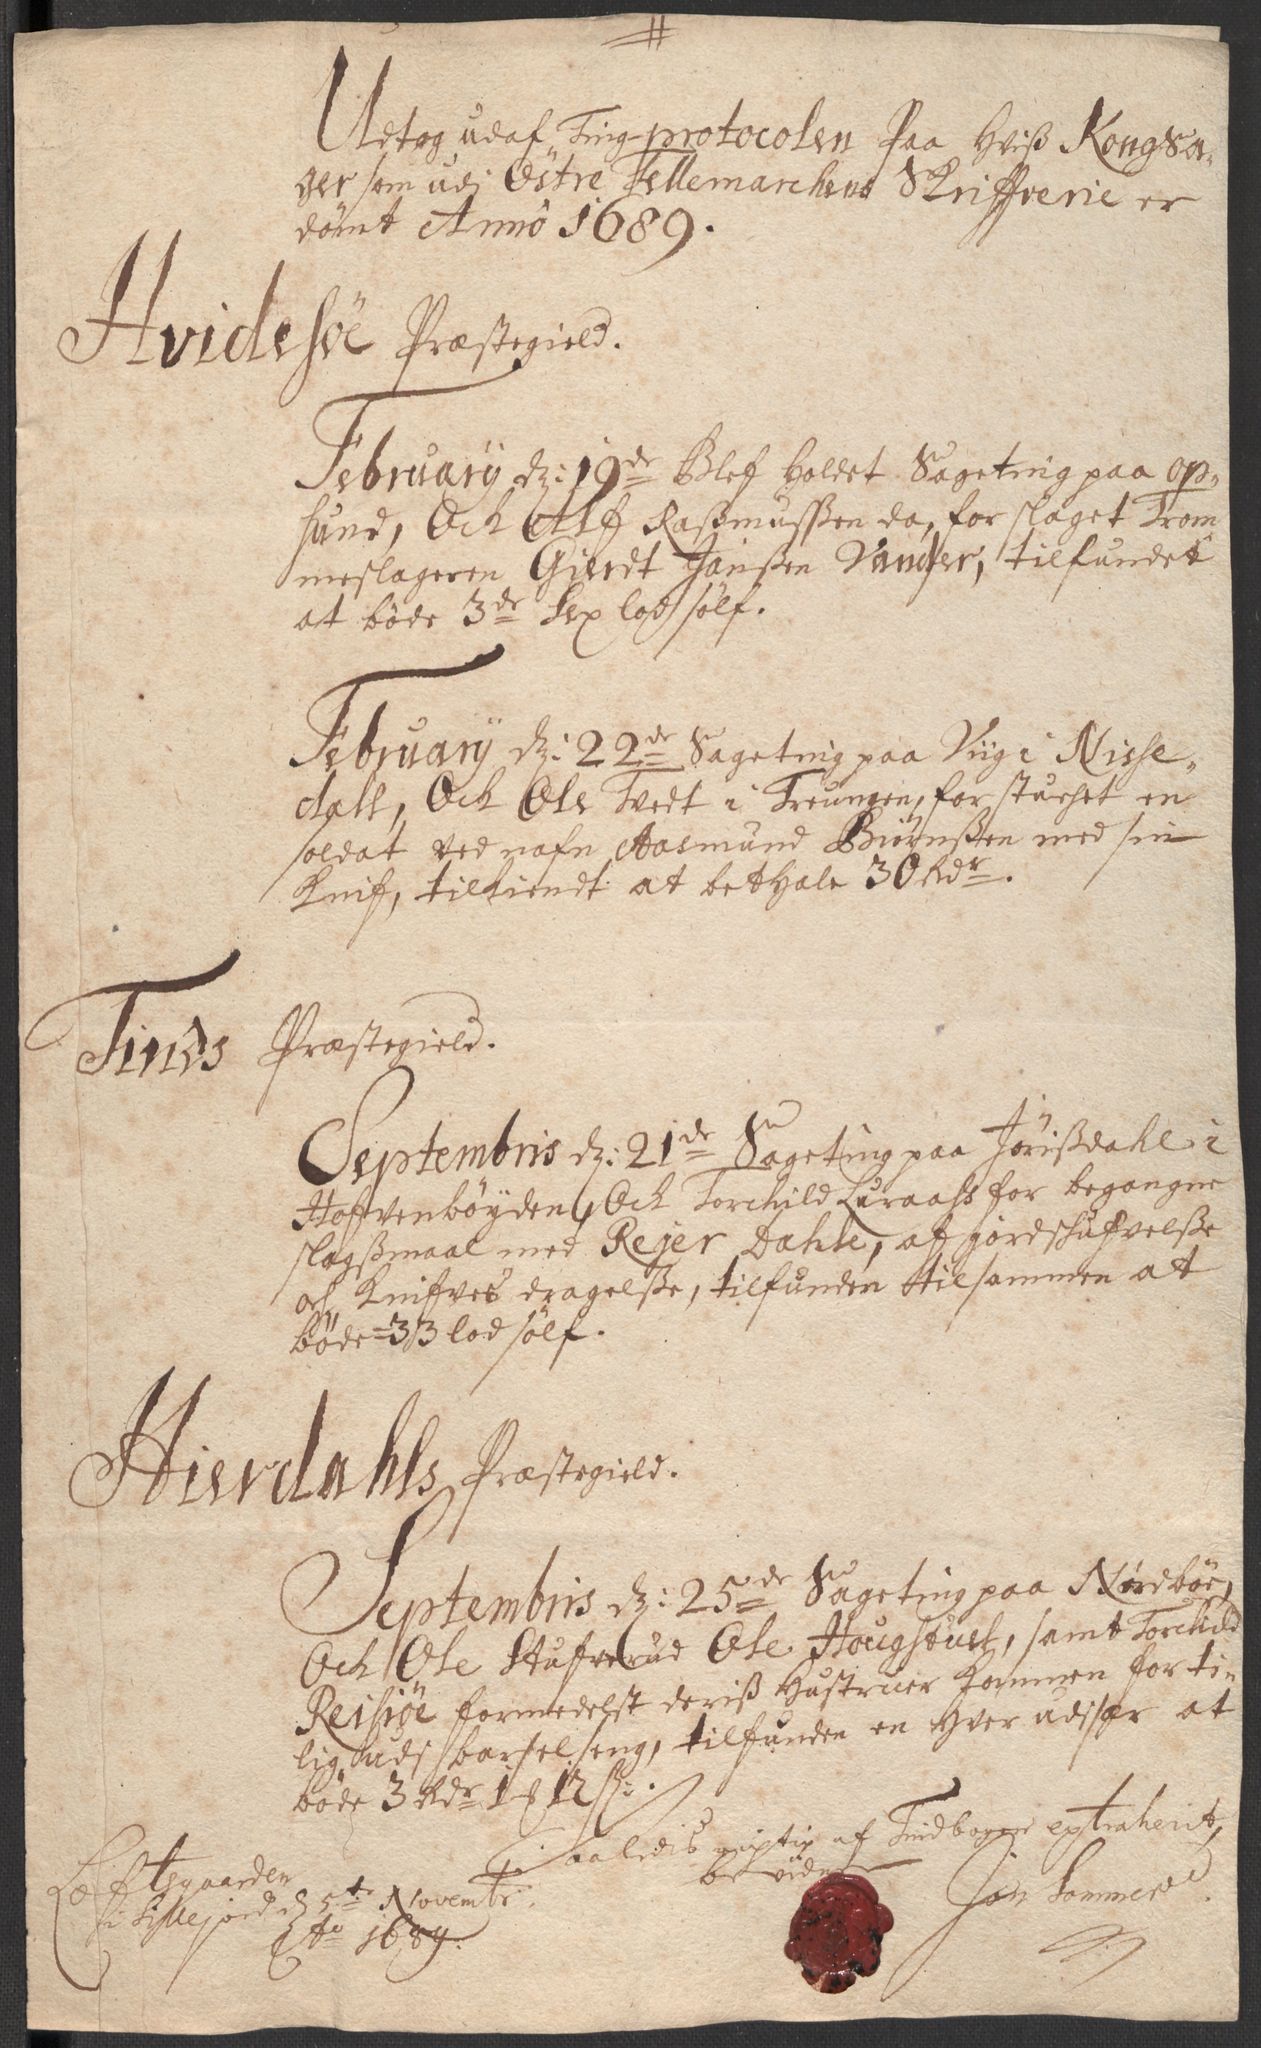 Udtog udaf Ting-protocolen Paa Hviß Kongsa-
ger som udj Östre Tellemarchens Skriffverie er
dömt Anno 1689.
Hvidesöe Præstegield.
February dz: 19de Blef Holdet Sageting paa Op-
sund, Och Alf Raßmusßen da, for slaget Trom
meslageren Gierdt Janßen Vander, tilfundet
at böde 3de Sex lod sölf.
February dz: 22de Sageting paa Viig i Nisse-
dall, Och Ole Tvedt i Treungen, for stuchet en
soldat ved nafn Aasmund Biörnßen med sin
Knif, tilkiendt at bethale 30 Rdr.
Tinds Præstegield.
Septembris dz: 21de Sageting paa Jörißdahl i
Hoffvenböyden, Och Torchild Luraass for begangne
slagßmaal med Rejer Dahle, af giordskufvelße
och Knifves dragelße, tilfunden tilsammen at
böde 33 lod sölf.
Hierdahls Præstegield.
Septembris dz: 25de Sageting paa Nordböe,
Och Ole Stufverud Ole Hougstuel, samt Torchild
Reisjöe formedelst deriß Hustruer Kommen for tii
lig udj barsel seng, tilfunden en Hver udsær at
böde 3 Rdr 1 12 ß:
Saaledis rigtig af Tindbogen extraherit,
bevidner
Jön Sommer
Lefftsgaarden
i Sillejord d 5te Novembr:
Ao 1689.